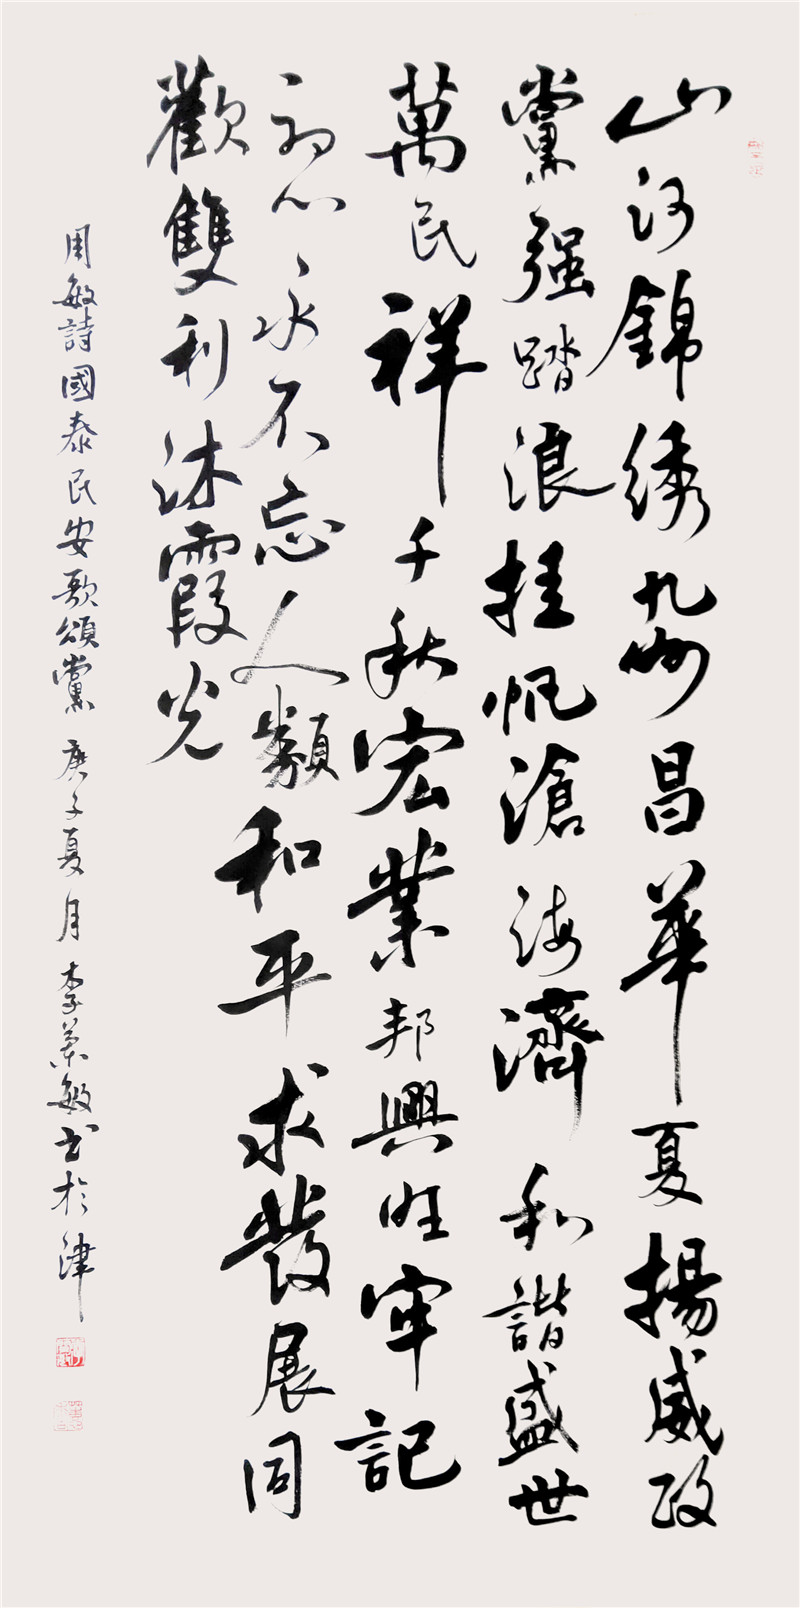 山河錦綉九州昌華夏揚威政
黨强踏浪挂帆滄海濟和諧盛世
萬民祥千秋宏業邦興旺牢記
初心永不忘人類和平求發展同
歡雙利沐霞光
周敏詩國泰民安歌頌黨庚子夏月李萬敏书於津